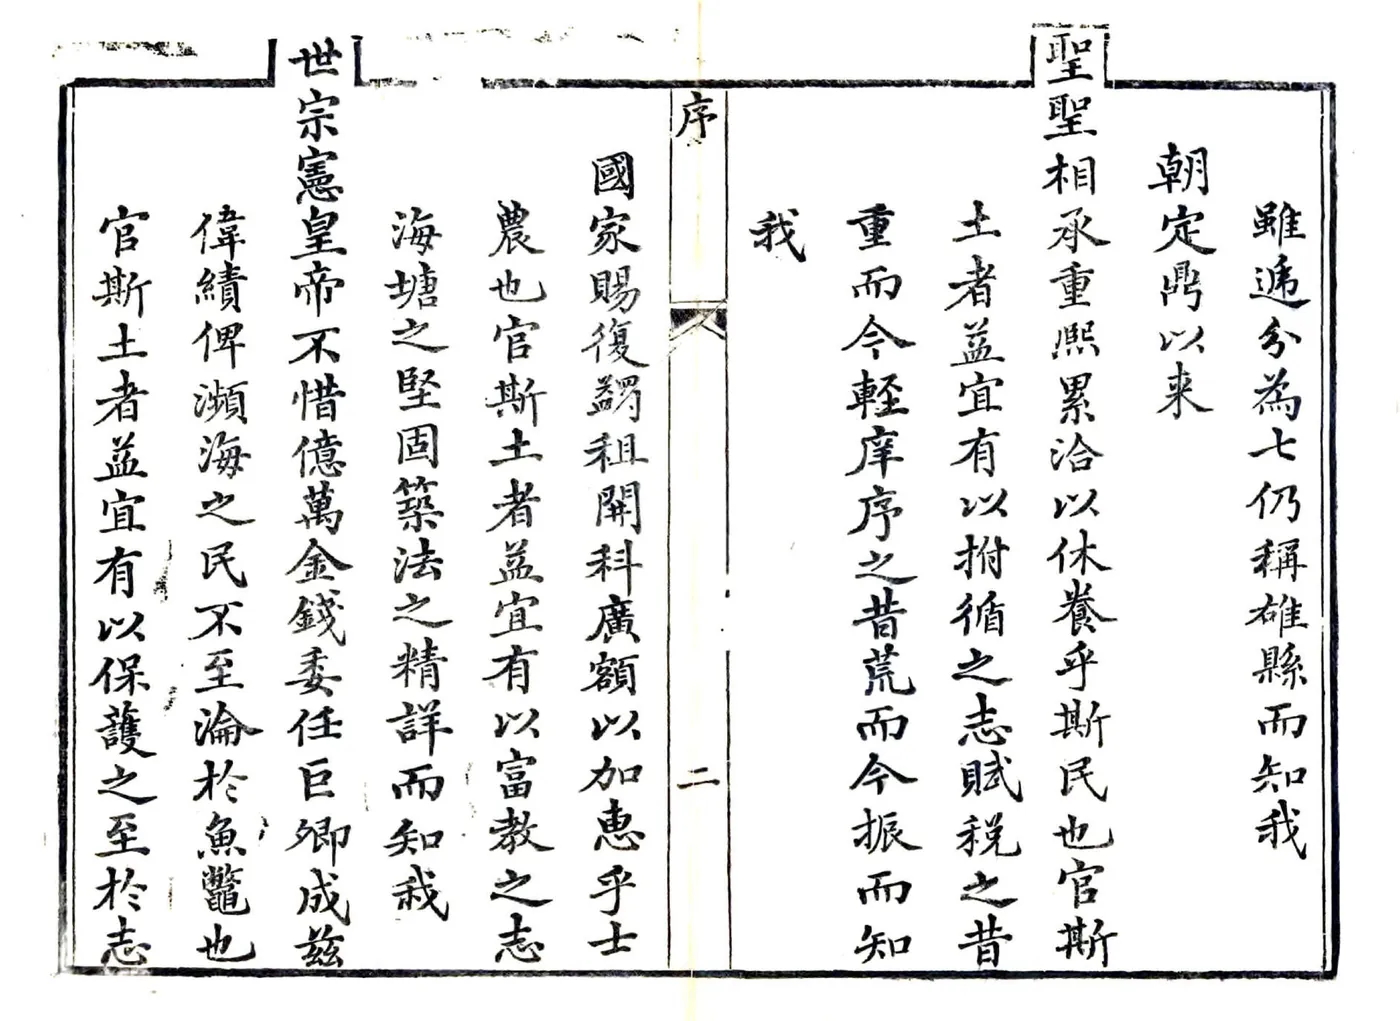 雖遞分為七仍稱雄縣而知我
朝定鼎以来
聖聖相承重熙累洽以休養乎斯民也官斯
土者益宜有以拊循之志賦稅之昔
重而今輕庠序之昔荒而今振而知
我
序
二
國家賜復蠲租開科廣額以加惠乎士
農也官斯土者益宜有以富教之志
海塘之堅固築法之精詳而知我
世宗憲皇帝不惜億萬金錢委任巨卿成茲
偉績俾瀕海之民不至淪於魚鼈也
官斯土者益宜有以保護之至於志